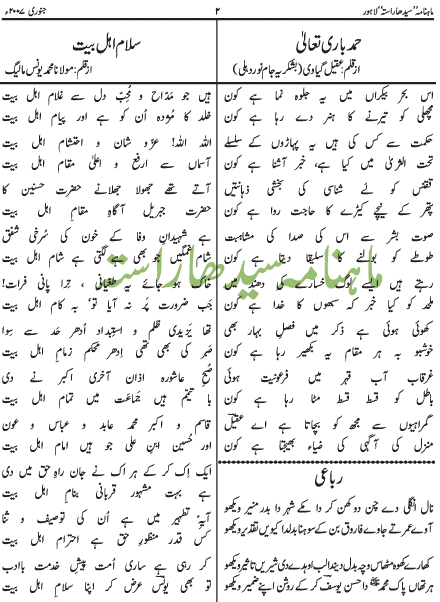 ماہنامہ "سیدھا راستہ" لاہور
۲
جنوری ۲۰۰۷ء
حمد باری تعالیٰ
از قلم: عقیل گیاوی (بشکریہ جام نور دہلی)
اس بحرِ بیکراں میں یہ جلوہ نما ہے کون
مچھلی کو تیرنے کا ہنر دے رہا ہے کون
حکمت سے کس کی ہیں یہ پہاڑوں کے سلسلے
تحت الثریٰ میں کیا ہے، خبر آشنا ہے کون
ققنس کو لَے شناسی کی بخشی ذہانتیں
پتھر کے نیچے کیڑے کا حاجت روا ہے کون
صوت بشر سے اس کی صدا کی مشابہت
طوطے کو بولنے کا سلیقا دیتا ہے کون
رہتے ہیں ایسے لوگ خسارے کی دھند میں
ملحد کو کیا خبر کہ سبھوں کا خدا ہے کون
کھوئی ہوئی ہے ذکر میں فصلِ بہار بھی
خوشبو یہ ہر مقام پہ بکھیر رہا ہے کون
غرقاب آب قہر میں فرعونیت ہوئی
باطل کو قسط قسط مٹا رہا ہے کون
گمراہیوں سے مجھ کو بچاتا ہے اے عقیلؔ
منزل کی آگہی کی ضیاء بھیجتا ہے کون
رباعی
نال انگلی دے چن دوکھن کر دا مکے شہر دا بدر منیر ویکھو
آوے عمر تے جاوے فاروق بن کے سوہنا بدلدا کیویں تقدیر ویکھو
کھارے کھوہ مٹھاس وچہ بدل دیندا لب اوہدے دی شیریں تاثیر ویکھو
ہر تھاں پاک محمد ﷺ دا حسن یوسف کر کے روشن اپنے ضمیر ویکھو
سلام اہل بیت
از قلم: مولانا محمد یونس مالیگ
ہیں جو مَدّاح و مُحِبّ دل سے غلامِ اہل بیت
خلد کا مژدہ اُن کو ہے اور پیام اہل بیت
اللہ اللہ! عزّ و شان و احتشامِ اہل بیت
آسماں سے ارفع و اعلیٰ مقامِ اہل بیت
آتے تھے جھولا جھلانے حضرت حسنین کا
حضرت جبریل آگاہِ مقامِ اہل بیت
ہے شہیدانِ وفا کے خون کی سُرخی شفق
شام غمگیں جو بھی ہے لگتی ہے شام اہل بیت
خاک ہو جائے یہ طغیانی، ترا پانی فرات!
جب ضرورت پر نہ آیا تو یہ کام اہل بیت
تھا یزیدی ظلم و استبداد اُدھر حد سے سوا
صبر کی بھی تھی اِدھر محکم زمامِ اہل بیت
صُبحِ عاشورہ اذان آخری اکبر نے دی
باہم تیتیس ہیں جماعت میں تمام اہل بیت
قاسم و اکبر محمد عابد و عباس و عون
اور حُسین ابنِ علی جو ہیں امام اہل بیت
ایک اِک کر کے ہر اک نے جان راہِ حق میں دی
ہے بہت مشہور قربانی بنامِ اہل بیت
آیۂ تطہیر میں ہے اُن کی توصیف و ثنا
کس قدر منظورِ حق ہے احترامِ اہل بیت
کر رہی ہے ساری اُمت پیش خدمت باادب
تو بھی یونسؔ عرض کر اپنا سلامِ اہل بیت
ماہنامہ سیدھا راستہ